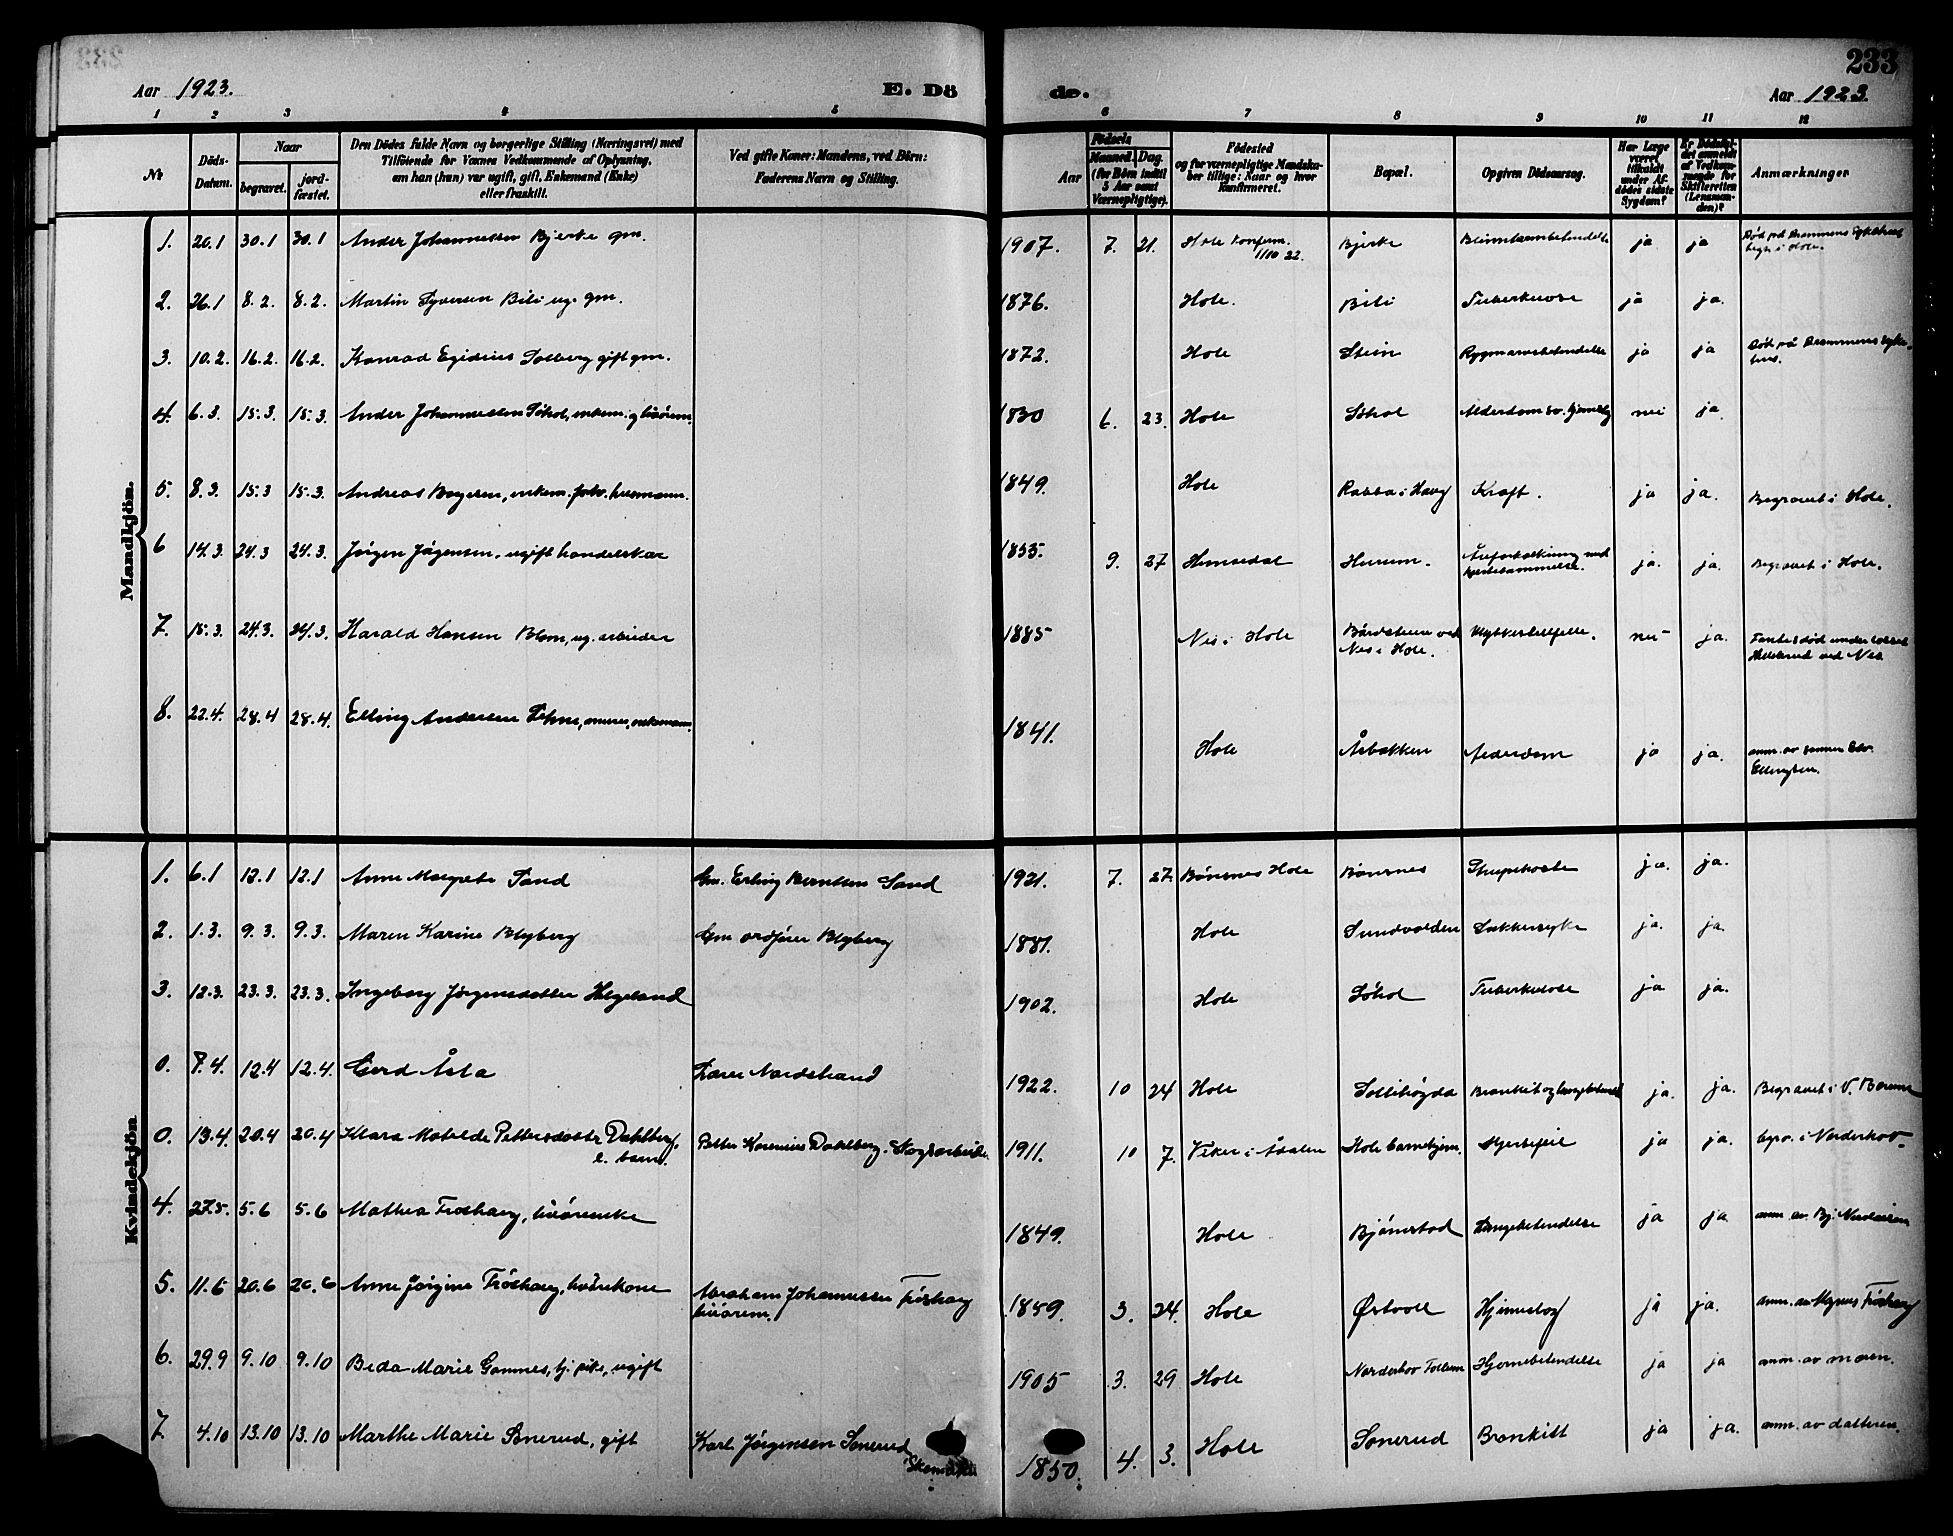 233
Aar 1923. E. Dö de. Aar 1923.
1 2 3 4 5 6 7 8 9 10 11 12
№
Döds-Datum.
Naar
begravet.
jord-fæstet.
Den Dödes fulde Navn og borgerlige Stilling (Næringsvei) med
Tilföiende for Voxnes Vedkommende af Oplysning,
om han (hun) var ugift, gift, Enkemand (Enke)
eller fraskilt.
Ved gifte Koner: Mandens, ved Börn:
Faderens Navn og Stilling.
Födsels
Aar
Maaned. Dag.
(for Börn indtil
5 Aar samt
Værnepligtige).
Födested
og for værnepligtige Mandska-
ber tillige: Naar og hvor
konfirmeret.
Bopæl.
Opgiven Dödsaarsag.
Har Læge
været
tilkaldt
under Af-
dödes sidste
Sygdom?
Er Dödsfal-
det anmeldt
af Vedkom-
mende for
Skifteretten
(Lensman-
den)?
Anmærkninger
Mandkjön.
1. 20.1 30.1 30.1 Ander Johannessen Bjerke gm. 1907. 7. 21. Hole konfirm. 1/10 22. Bjerke Blinntarmbetendelse ja ja Död på Drammens Sykehus begr. i Hole.
2. 26.1 8.2. 8.2. Martin Syversen Bili ug. gm. 1876. Hole. Bili Tuberkulose ja ja.
3. 10.2. 16.2. 16.2. Konrad Egidius Solberg gift gm. 1872. Hole Stein Rygmarvsbetendelse ja ja Död på Drammens syke-hus.
4. 6.3. 15.3. 15.3. Ander Johannessen Söhol, enkem. og livörem. 1830 6. 23. Hole Söhol Alderdom nei ja.
5. 8.3. 15.3 15.3. Andreas enkem. husmann. 1849. Hole Rabba i Haug Kræft. ja ja. Begravet i Hole.
6 14.3. 24.3 24.3. Jörgen Jörgensen, ugift handelskar 1855. 9. 27 Hemsedal Hurum. Åreforkalkning med hjertelammelse. ja. ja. Begravet i Hole.
7. 15.3. 24.3. 24.3. Harald Hansen Blom, ug. arbeider 1885 Nes i Hole ved Nes i Hole. Ulykkestilfelle. nei ja. Fantes död under ved Nes
8. 22.4. 28.4 28.4. Elling Andersen murer, enkemann. 1841. Hole Åsbakken Alderdom ja ja. anm. av sönnen Edv. Ellingsen.
Kvindekjön
1. 6.1 12.1 12.1 Anne Margrete Sand Gm. Erling Berntsen Sand 1921. 7. 27. Bönsnes Hole Bönsnes Strupehoste ja. ja.
2. 1.3. 9.3. 9.3. Maren Karine Blyberg Gm ordförer Blyberg 1881. Hole Sundvolden Sukkersyke ja. ja.
3. 12.3. 23.3. 23.3. Ingeborg Jörgensdatter Helgeland 1902. Hole Söhol Tuberkulose ja ja.
0. 7.4. 12.4 12.4. Gerd Åsta Lærer Nordstrand 1922. 10 24 Hole Sollihögda Bronkit og lungebetendelse ja. ja. Begravet i V. Bærum
0. 13.4. 20.4 20.4 Klara Matilde Pettersdatter Dahlberg, barn. Petter Dahlberg. Skogsarbeider. 1911. 10 7. Viker i Ådalen Hole barnehjem. Hjertefeil ja ja. begr. i Norderhov.
4. 27.5. 5.6 5.6 Mathea Fröshaug, livörenke 1849. Hole Bjönstad Lungebetendelse ja ja. anm. av Bj.
5. 11.6 20.6 20.6 Anne Jörgine Fröshaug, livörekone Abraham Johannessen Fröshaug livörem. 1859. 3. 24. Hole Ørtvoll Hjerneslag ja ja. anm. av Magnus Fröshaug
6. 29.9 9.10 9.10 Beda Marie Gomnes, tj. pike, ugift 1905 3. 29 Hole Norderhov Hjernebetendelse ja ja anm. av moren.
7. 4.10 13.10 13.10 Marthe Marie Sonerud, gift Karl Jörgensen Sonerud, 1850. 4. 3. Hole Sonerud Bronkitt ja ja. anm. av datteren.